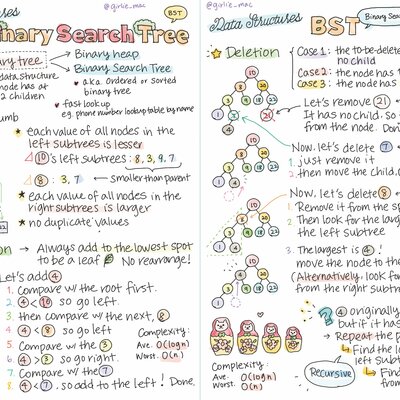 @girlie_mac
Binary Search Tree
BST
Binary heap
Binary Search Tree
a.k.a. Ordered or Sorted
binary tree
data structure
node has at
2 children
Fast look up
e.g. phone number lookup table by name
each value of all nodes in the
left subtrees is lesser
10's left subtrees: 8, 3, 9, 7
8 : 3, 7 ← smaller than parent
each value of all nodes in the
right subtrees is larger
no duplicate values
→ Always add to the lowest spot
to be a leaf No rearrange!
Let's add 4
1. Compare w/ the root first.
2. 4 < 10 so go left.
3. then compare w/ the next, 8
4. 4 < 8 so go left
5. Compare w/ the 3
6. 4 > 3 so go right.
7. Compare w/ the 7
8. 4 < 7, so add to the left! Done.
Complexity:
Ave. O(log n)
Worst. O(n)
@girlie_mac
Data Structures
BST
Binary Sear
Deletion
Case 1 : the to-be-delete
no child
Case 2 : the node has
Case 3 : the node has
Let's remove 21
It has no child. so
from the node.
Now, let's delete 7
1. just remove it
2. then move the child
Now, let's delete 8
1. Remove it from the
2. Then look for the larg
the left subtree
3. The largest is 4!
move the node to the
(Alternatively, look for
from the right subtre
4 originally
but if it has
→ Repeat the
Find the
left
Find
from
Recursive
Complexity:
Ave. O(log n)
Worst. O(n)